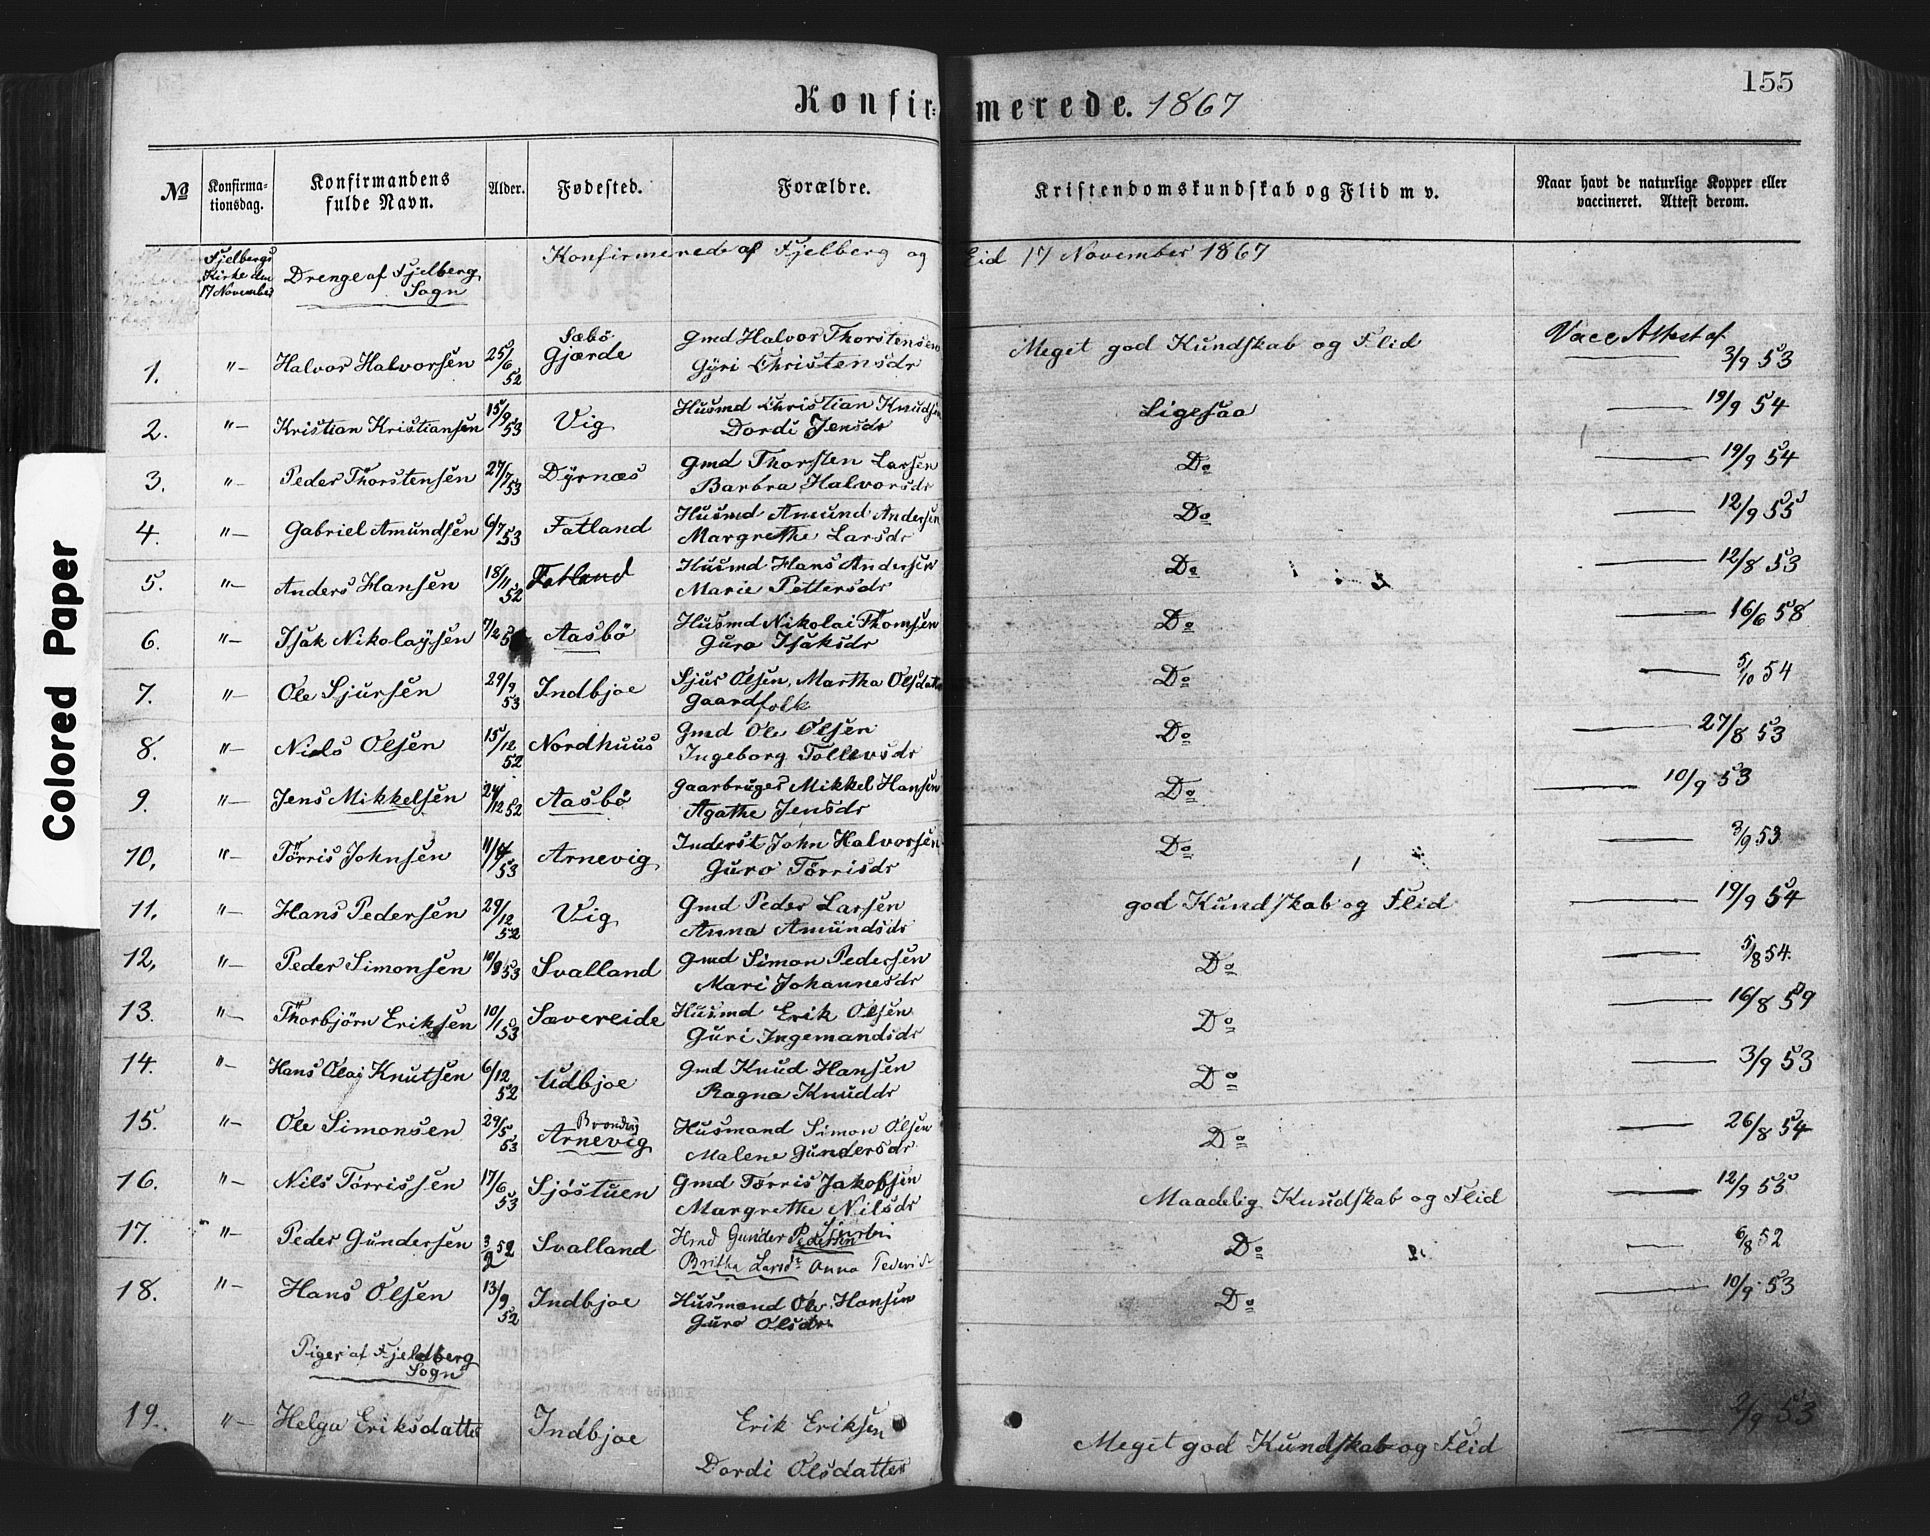 155
Konfirmerede. 1867
№ Konfirma-tionsdag. Konfirmandens fulde Navn. Alder. Fødested. Forældre. Kristendomskundskab og Flid m v. Naar havt de naturlige Kopper eller vaccineret. Attest derom.
Fjelbergs Kirke den 17 November Drenge af Fjelberg Sogn Konfirmerede af Fjelberg og Eid 17 November 1867
1. "– Halvor Halvorsen 25/6 52 Sæbö Gjærde Gmd Halvor Thorstensen Gyri Christensdr Meget god Kundskab og Flid Vacc Attest af 3/9 53
2. "– Kristian Kristiansen 15/9 53 Vig Husmd Christian Knudsen Dordi Jensdr Ligesaa — 19/9 54
3. "– Peder Thorstensen 27/7 53 Dyrnæs Gmd Thorsten Larsen Barbra Halvorsdr Do — 19/9 54
4. "– Gabriel Amundsen 6/7 53 Fatland Husmd Amund Andersen Margrethe Larsdr Do — 12/9 55
5. "– Anders Hansen 18/11 52 Fatland Husmd Hans Andersen Marie Pettersdr Do — 12/8 53
6. "– Isak Nikolaysen 7/2 5 Aasbö Husmd Nikolai Thomsen Guro Isaksdr Do — 16/6 58
7. "– Ole Sjursen 29/9 53 Indbjoe Sjur Olsen, Martha Olsdatter Gaardfolk Do — 5/10 54
8. "– Niels Olsen 15/12 52 Nordhuus Gmd Ole Olsen Ingeborg Tollevsdr Do — 27/8 53
9. "– Jens Mikkelsen 24/12 52 Aasbö Gaarbruger Mikkel Hansen Agathe Jensdr Do — 10/9 53
10, "– Törris Johnsen 11/4 53 Arnevig Inderst John Halvorsen Guro Törrisdr Do — 3/9 53
11, "– Hans Pedersen 29/12 52 Vig Gmd Peder Larsen Anna Amundsdr god Kundskab og Flid — 19/9 54
12, "– Peder Simonsen 10/8 53 Svalland Gmd Simon Pedersen Mari Johannesdr Do — 5/8 54.
13. "– Thorbjörn Eriksen 10/1 53 Sævereide Husmd Erik Olsen Guri Ingemandsdr Do — 16/8 59
14. "– Hans Olai Knutsen 6/12 52 Udbjoe Gmd Knud Hansen Ragna Knuddr Do — 3/9 53
15. "– Ole Simonsen 29/5 53 Arnevig Husmand Simon Olsen Malene Gundersdr Do — 26/8 54
16. "– Nils Törrissen 17/6 53 Sjöstuen Gmd Törris Jakobsen Margrethe Nilsdr Maadelig Kundskab og Flid — 12/9 55
17. "– Peder Gundersen 3/2 52 Svalland Hmd Gunder Pedersen Britha Larsdr Anna Do — 6/8 52
18. "– Hans Olsen 13/9 52 Indbjoe Husmand Ole Hansen Guro Olsdr Do — 10/9 53
Piger af Fjeldberg Sogn
19. "– Helga Eriksdatter Indbjoe Erik Eriksen Dordi Olsdatter Meget god Kundskab og Flid — 2/9 53
Colored Paper